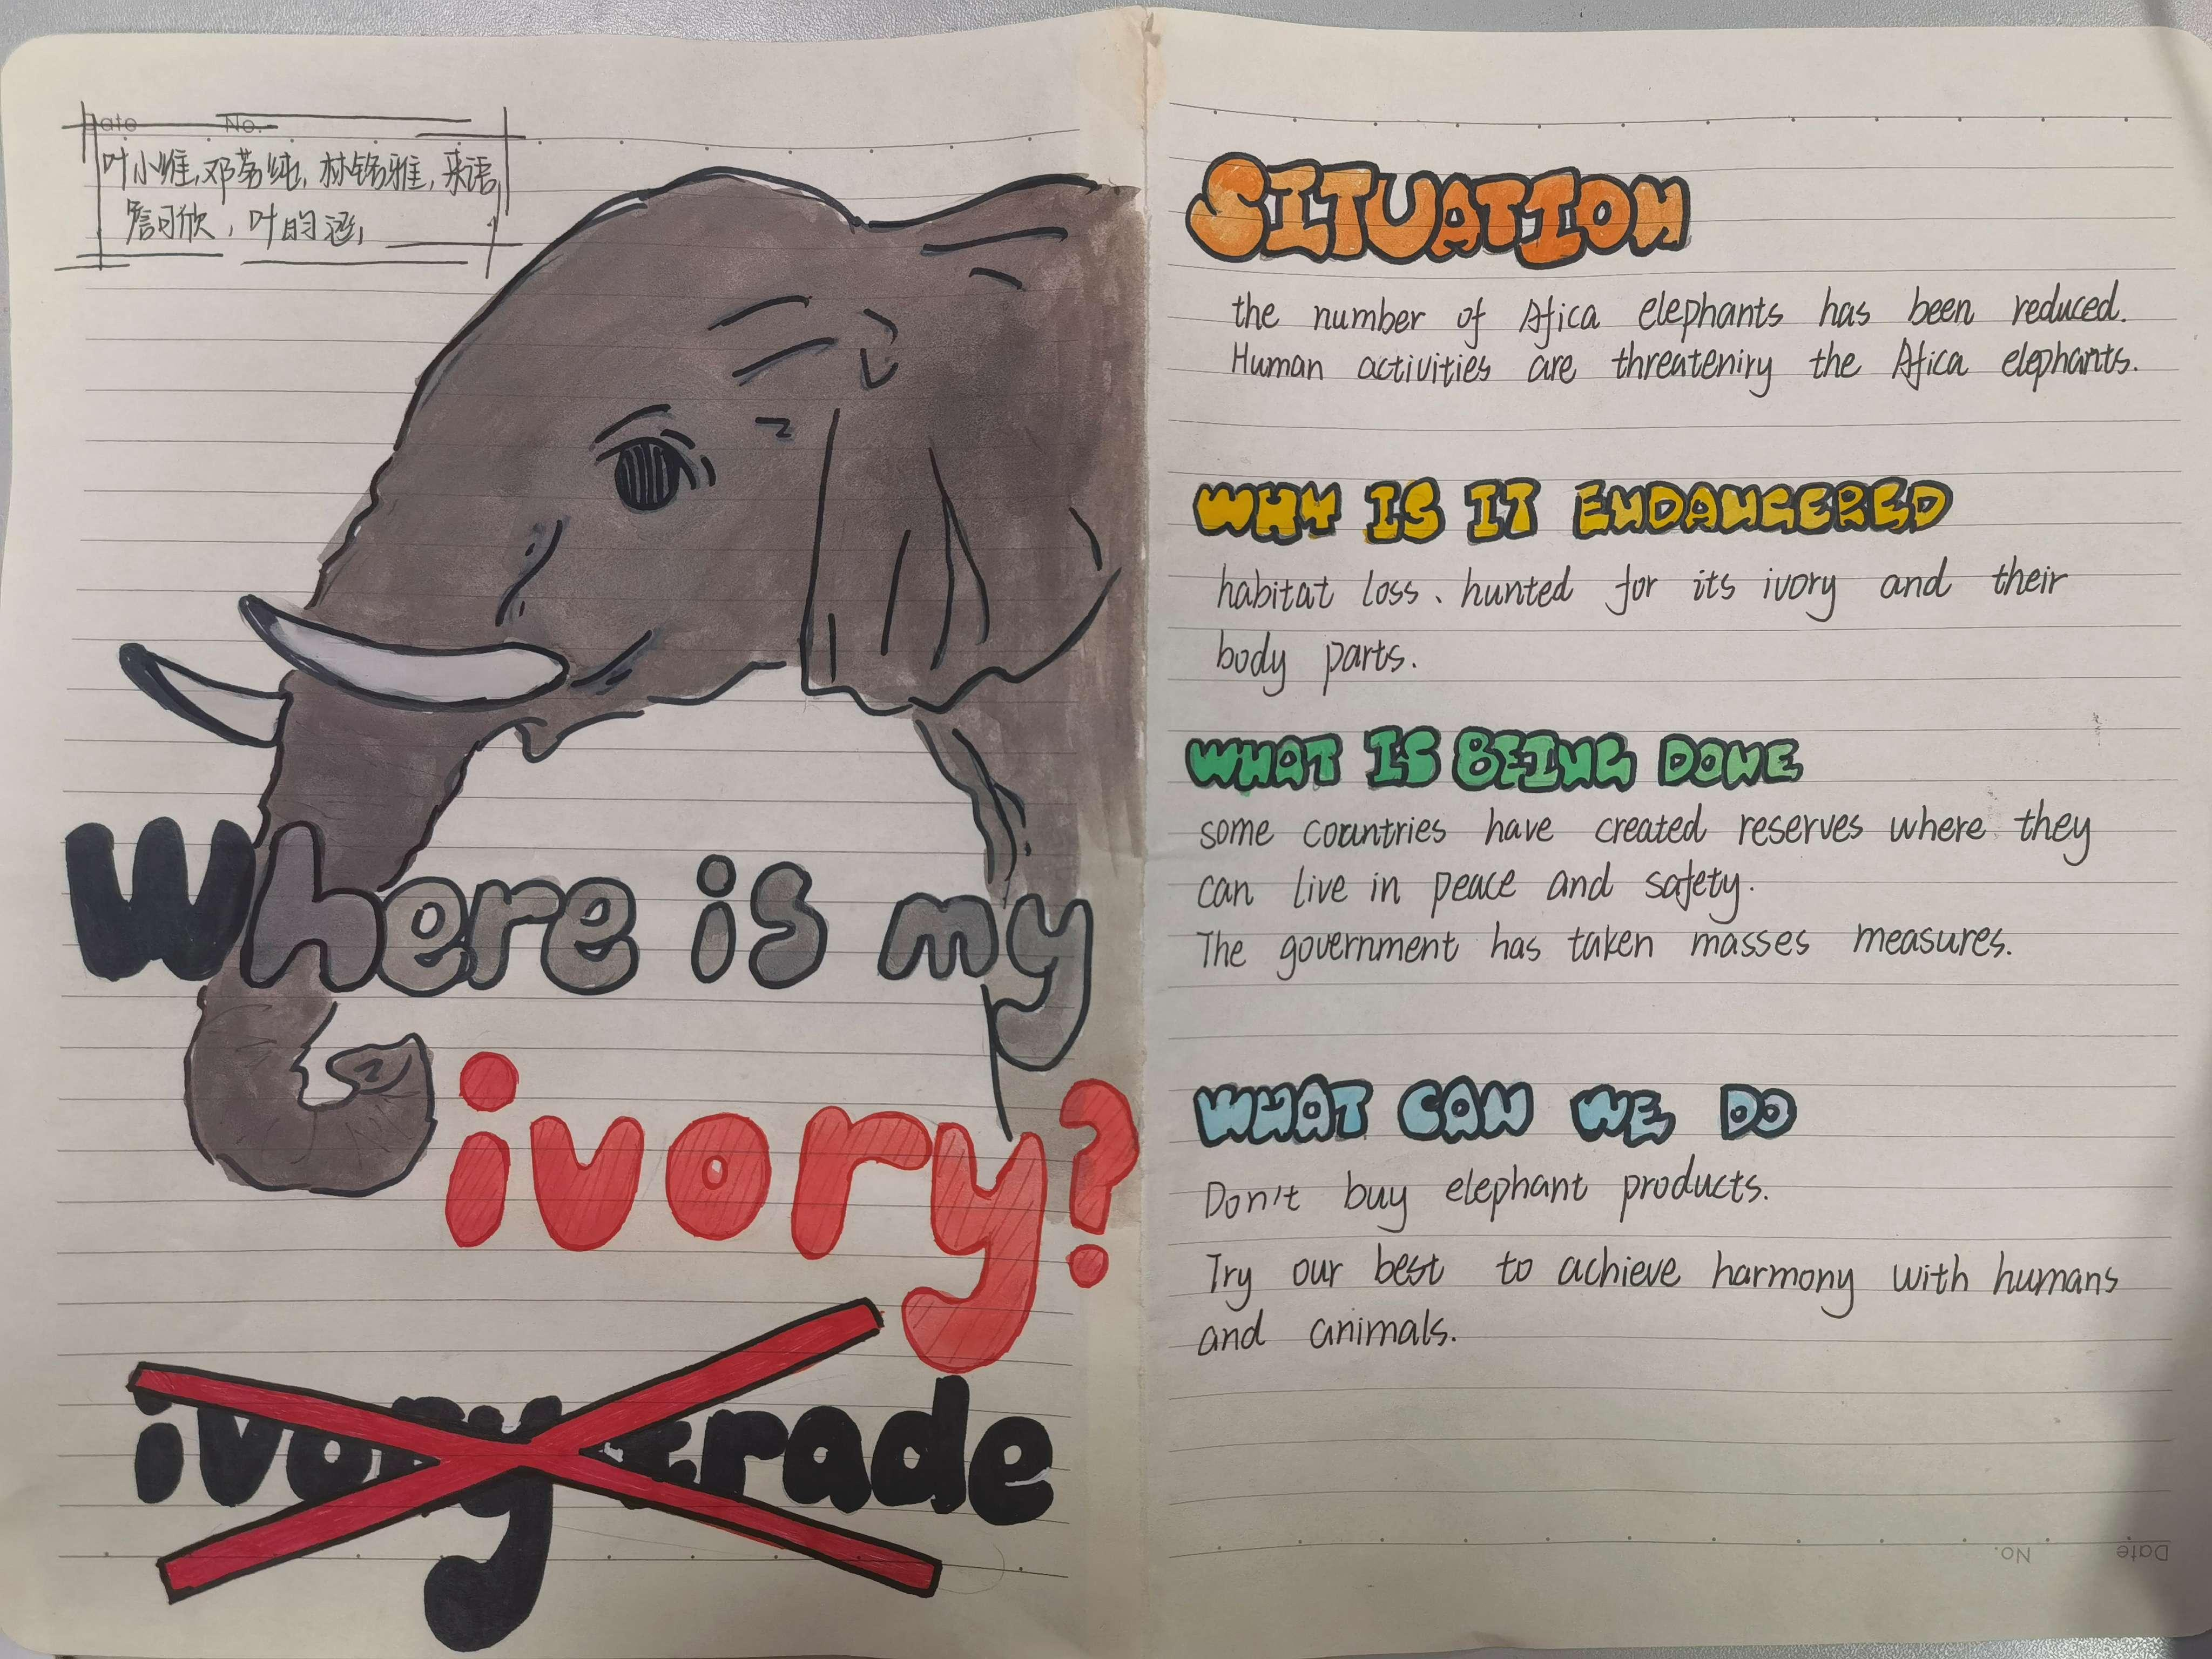 Date No.
叶小维,邓芴纯,林铭雅,来语,
詹可欣,叶昀涵
Where is my
ivory?
ivory trade
SITUATION
the number of Afica elephants has been reduced.
Human activities are threateniry the Afica elephants.
WHY IS IT ENDANGERED
habitat loss、hunted for its ivory and their
body parts.
WHAT IS BEING DONE
some countries have created reserves where they
can live in peace and safety.
The government has taken masses measures.
WHAT CAN WE DO
Don't buy elephant products.
Try our best to achieve harmony with humans
and animals.
Date No.